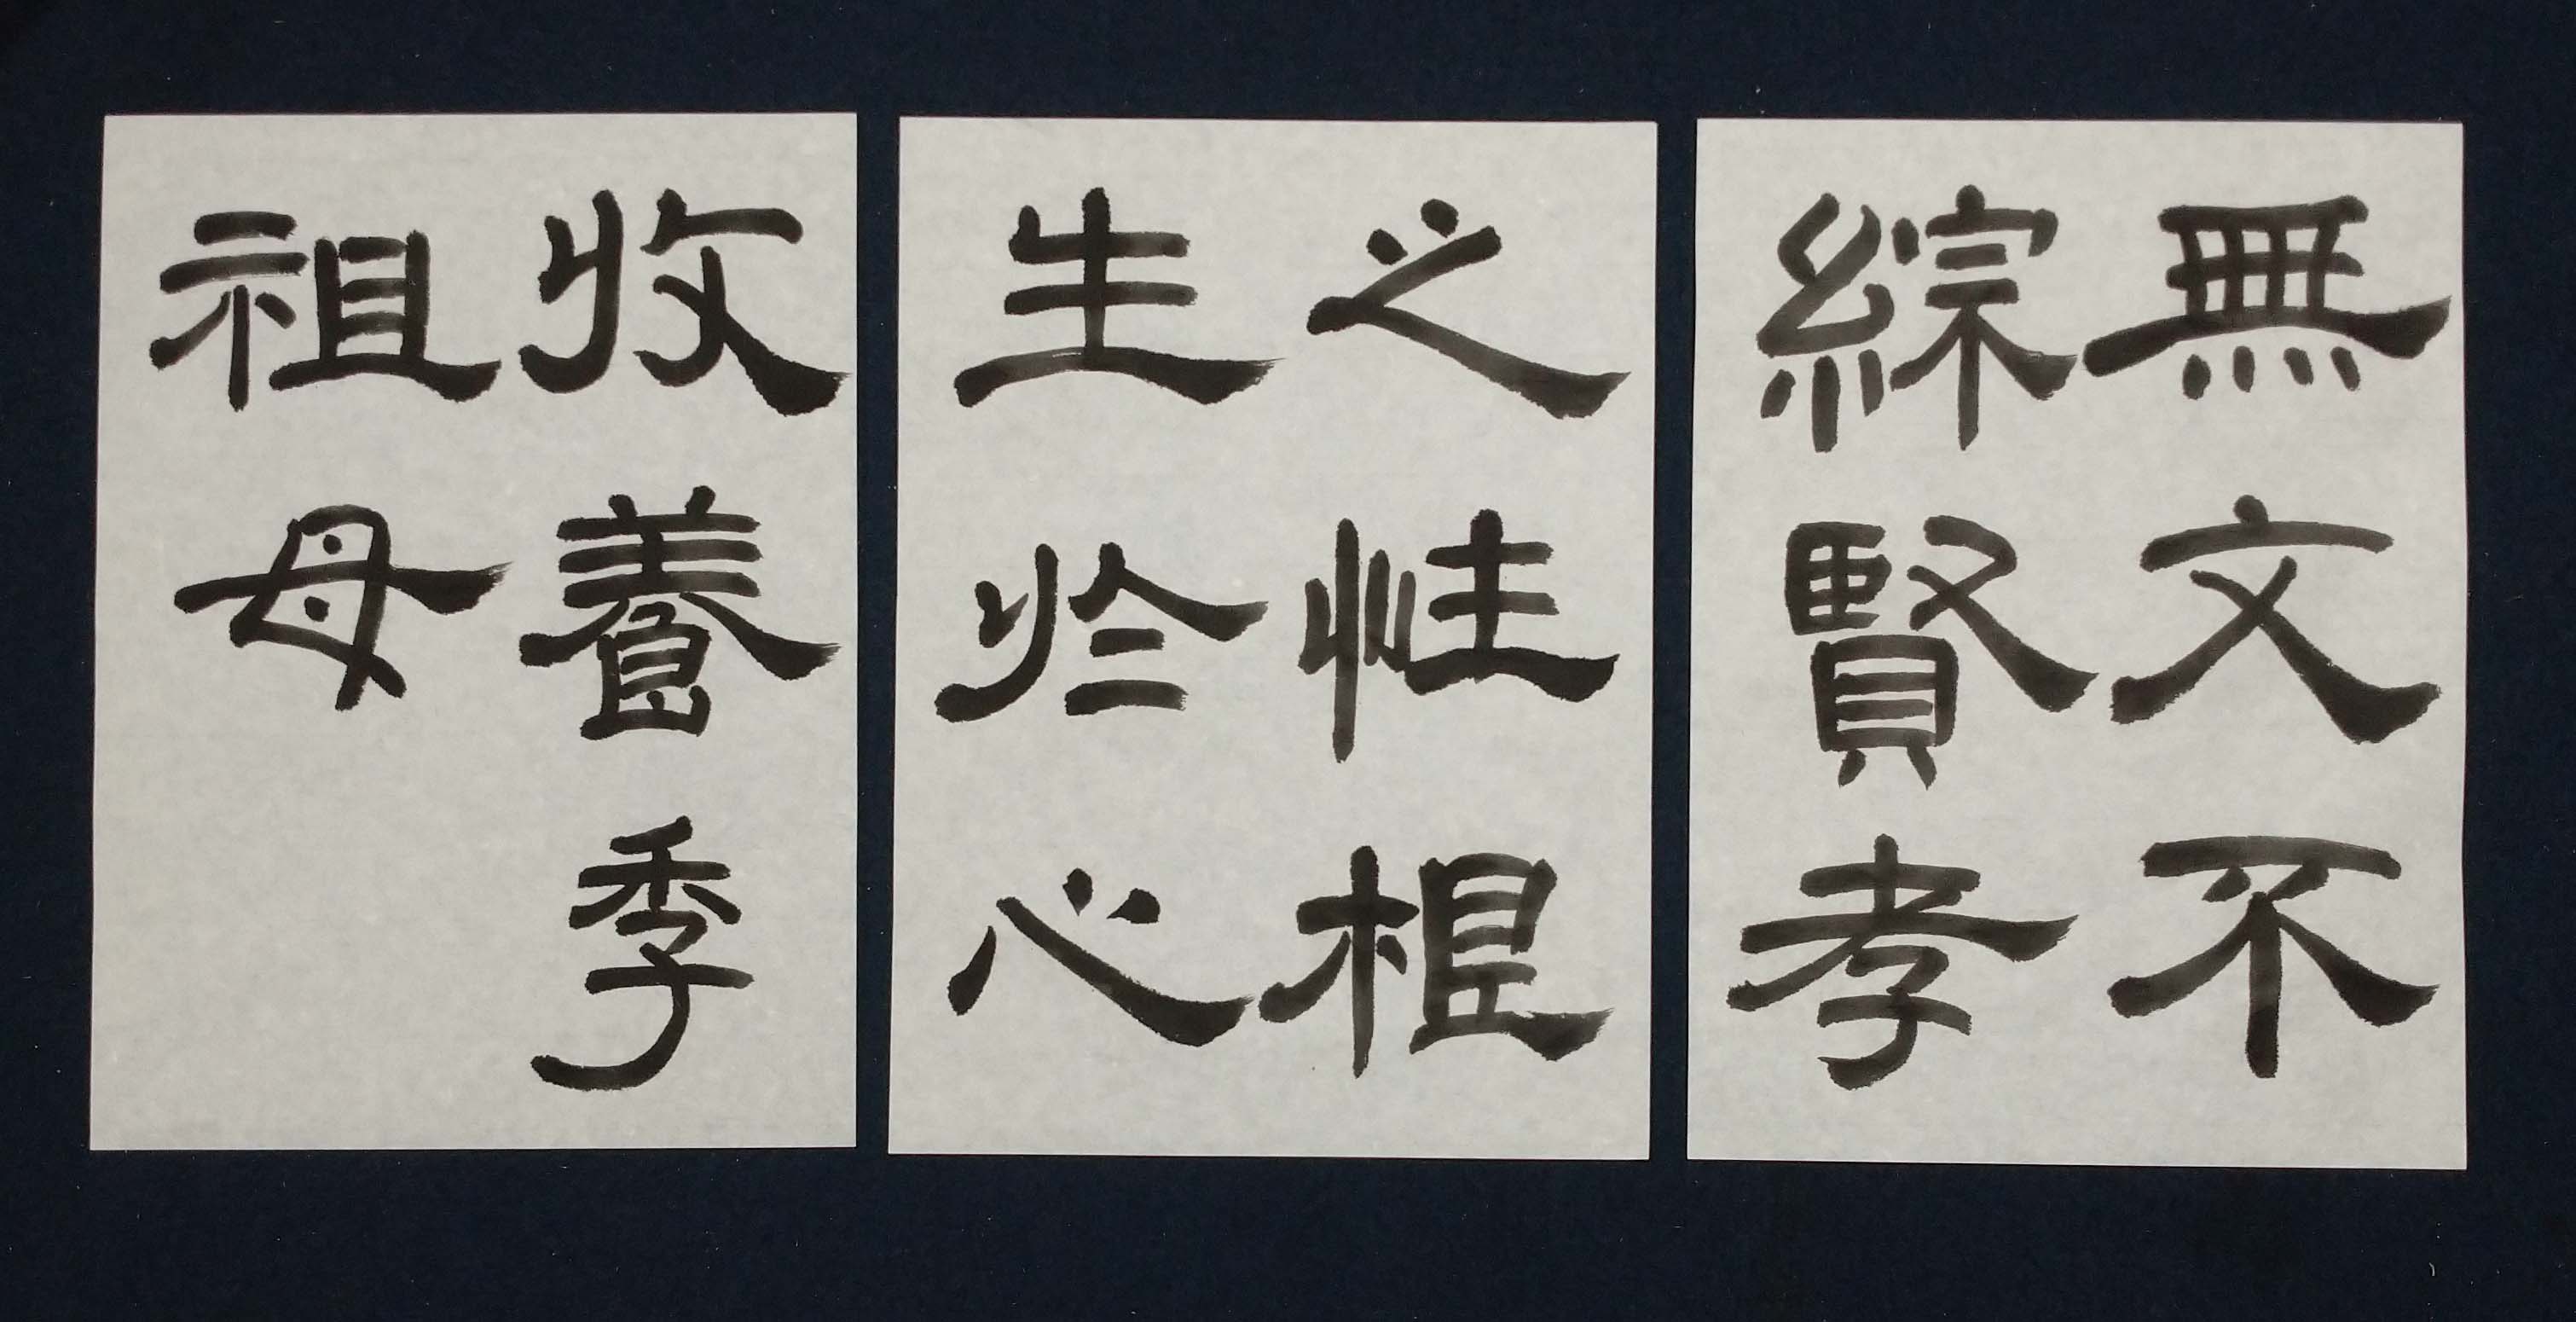 無文不
綜賢孝
之性根
生於心
收養季
祖母